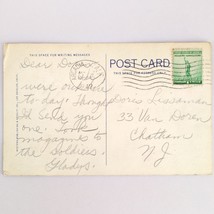 THIS SPACE FOR WRITING MESSAGES
POST CARD
THIS SPACE FOR ADDRESS ONLY
Dear Doris
Well
were out
to day. Thought
I send you
one. Some
magazines to
the Soldiers.
Gladys.
Doris
33 Van Doren
Chatham
N J